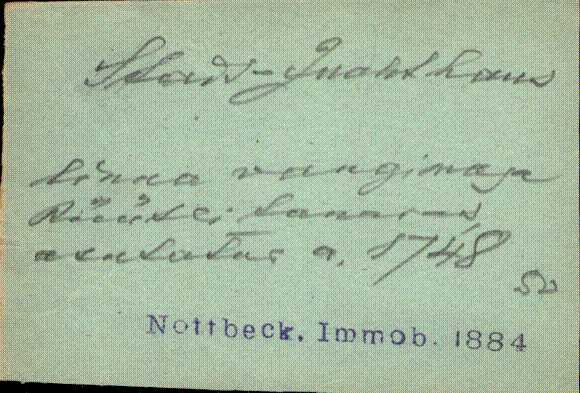 Stadt-Zuchthaus
linna vangimaja
Rüütli tänavas,
asutatud a. 1748
Nottbeck, Immob. 1884